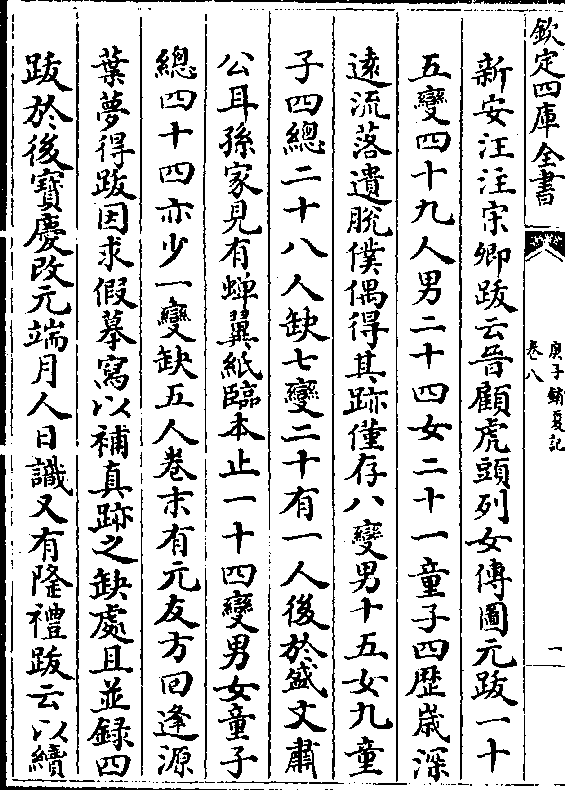 欽定四庫全書
庚子銷夏記
卷八
一
新安汪注宋卿跋云晉顧虎頭列女傳圖元跋一十
五變四十九人男二十四女二十一童子四歷歲深
遠流落遺脫僕偶得其跡僅存八變男十五女九童
子四總二十八人缺七變二十有一人後於盛文肅
公耳孫家見有蟬翼紙臨本止一十四變男女童子
總四十四亦少一變缺五人卷末有元友方回逢源
葉夢得跋因求假摹寫以補真跡之缺處且並録四
跋於後寶慶改元端月人日識又有隆禮跋云以續